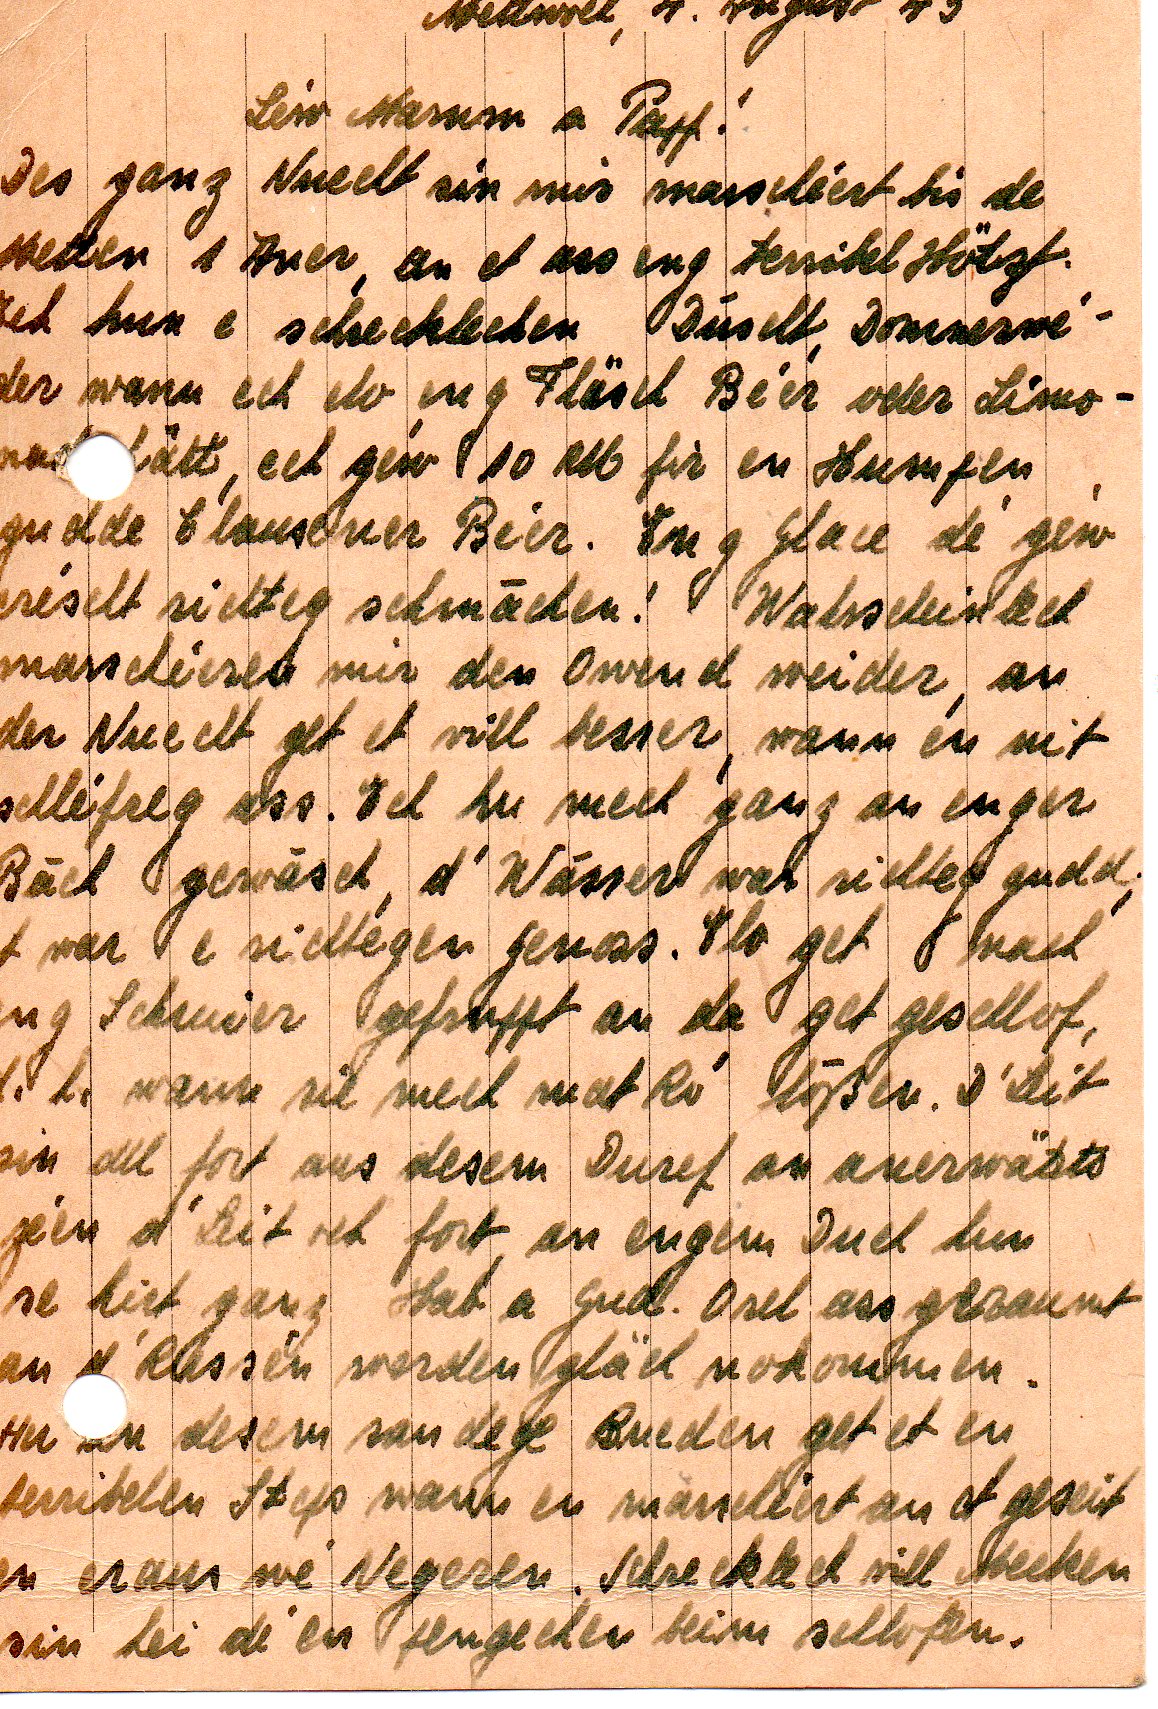 Mettwoch, 4. August 43
Léiw Mamm a Papp!
Des ganz Nuecht sin mir marschéiert bis de
Metten 1 Auer, an et ass eng terribel Hötzt.
Ech hun e schecklechen Duscht, Donnerwé-
der wann ech elo eng Fläsch Béier oder Limo-
nad hätt, ech géiw 10 RM fir en Humpen
gudde Clausener Béier. Eng Glace dé géiw
eréscht richteg schmāchen! Wahrscheinlech
marschéieren mir den Owend weider, an
der Nuecht get et vill besser, wann én nit
schléifreg ass. Ech hu mech ganz an enger
Bāch gewäsch, d'Wässer war richteg gudd,
t war e richtegen Genoss. Elo get nach
eng Scheier gefruppt an da get geschlof,
d. h. wann sie mech mat Ró lōßen. D'Leit
sin all fort aus desem Duref an anerwäerts
géin d'Leit och fort, an engem Duch hun
se hirt ganz Hab a Gud. Orel ass geraumt
an d'Russen werden gläch nokommen.
Hei an desem sandege Bueden get et en
terribelen Steps wann en marschéiert an et geseit
en eraus wé Negeren. Schrecklech vill Mecken
sin hei dé en pengechen beim schlofen.